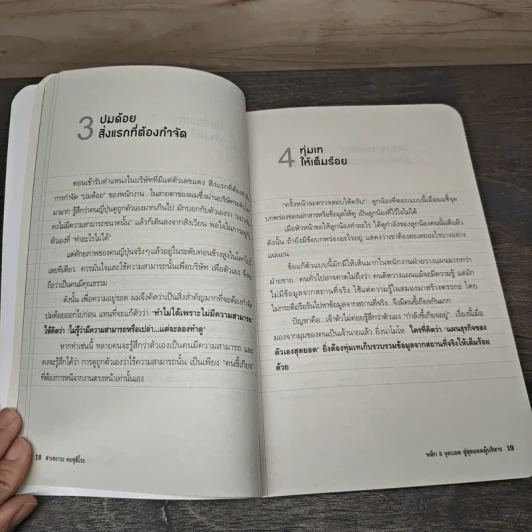 3 ปมด้อย
สิ่งแรกที่ต้องกำจัด
ตอนเข้ารับตำแหน่งในบริษัทที่มีแต่ตัวเลขแดง สิ่งแรกที่ต้องทำ
การกำจัด "ปมด้อย" ของพนักงาน ในสายตาของผมซึ่งผ่านบริษัท
มามาก รู้สึกว่าคนญี่ปุ่นดูถูกตัวเองมากเกินไป มักบอกกับตัวเองว่า
คงไม่มีความสามารถขนาดนั้น" แล้วก็เดินลงจากสังเวียน พอใจในการอยู่
ตัวเองที่ "ทำอะไรไม่ได้"
แต่ศักยภาพของคนญี่ปุ่นจริงๆ แล้วอยู่ในระดับค่อนข้างสูงในโลก
เลยทีเดียว ควรมั่นใจและใช้ความสามารถนั้นเพื่อบริษัท เพื่อตัวเอง จึงจะ
ถือว่าเป็นคนมีคุณธรรม
ดังนั้น เพื่อความอยู่รอด ผมจึงคิดว่าเป็นสิ่งสำคัญมากที่จะต้องกำจัด
ปมด้อยออกไปก่อน แทนที่จะคิดว่า "ทำไม่ได้เพราะไม่มีความสามารถ"
ให้คิดว่า "ไม่รู้ว่ามีความสามารถหรือเปล่า...แต่จะลองทำดู"
หากทำเช่นนี้ หลายคนจะรู้สึกว่าตัวเองเป็นคนมีความสามารถ และ
คงจะรู้สึกได้ว่า การดูถูกตัวเองว่าไร้ความสามารถนั้น เป็นเพียง "คนขี้เกียจ"
ที่ต้องการหนีจากงานตรงหน้าเท่านั้นเอง
18 ฮาเซงาวะ คะซุฮิโระ
4 ทุ่มเท
ให้เต็มร้อย
"ครั้งหน้าจะตรวจสอบให้ครับ" ลูกน้องที่ตอบแบบนี้เมื่อผมชี้จุด
บกพร่องของเอกสารหรือข้อมูลให้ดู เป็นลูกน้องที่ไว้ใจไม่ได้
เมื่อหัวหน้าขอให้ลูกน้องทำอะไร ได้ดูกำลังของลูกน้องคนนั้นแล้ว
ดังนั้น ถ้ายังมีข้อบกพร่องอะไรอยู่ แสดงว่าเขาต้องละเลยอะไรบางอย่าง
แน่นอน
ข้อแก้ตัวแบบนี้มักมีให้เห็นมากในพนักงานฝ่ายวางแผนมากกว่า
ฝ่ายขาย คนทั่วไปอาจคาดไม่ถึงว่า คนคิดวางแผนแม้จะมีความรู้ แต่มัก
ไม่มีข้อมูลจากสถานที่จริง ใช้แต่ความรู้ในสมองมาสร้างตรรกะ โดย
ไม่กระตือรือร้นไปหาข้อมูลจากสถานที่จริง จึงมีคนขี้เกียจกันมาก
ปัญหาคือ เจ้าตัวไม่ค่อยรู้สึกว่าตัวเอง "กำลังขี้เกียจอยู่" เรื่องนี้เมื่อ
มองจากมุมของคนเป็นเจ้านายแล้ว ยิ่งน่าโมโห ใครที่คิดว่า "แผนธุรกิจของ
ตัวเองสุดยอด" ยิ่งต้องทุ่มเทเก็บรวบรวมข้อมูลจากสถานที่จริงให้เต็มร้อย
ด้วย
พลิก 8 จุดบอด สู่สุดยอดผู้บริหาร 19